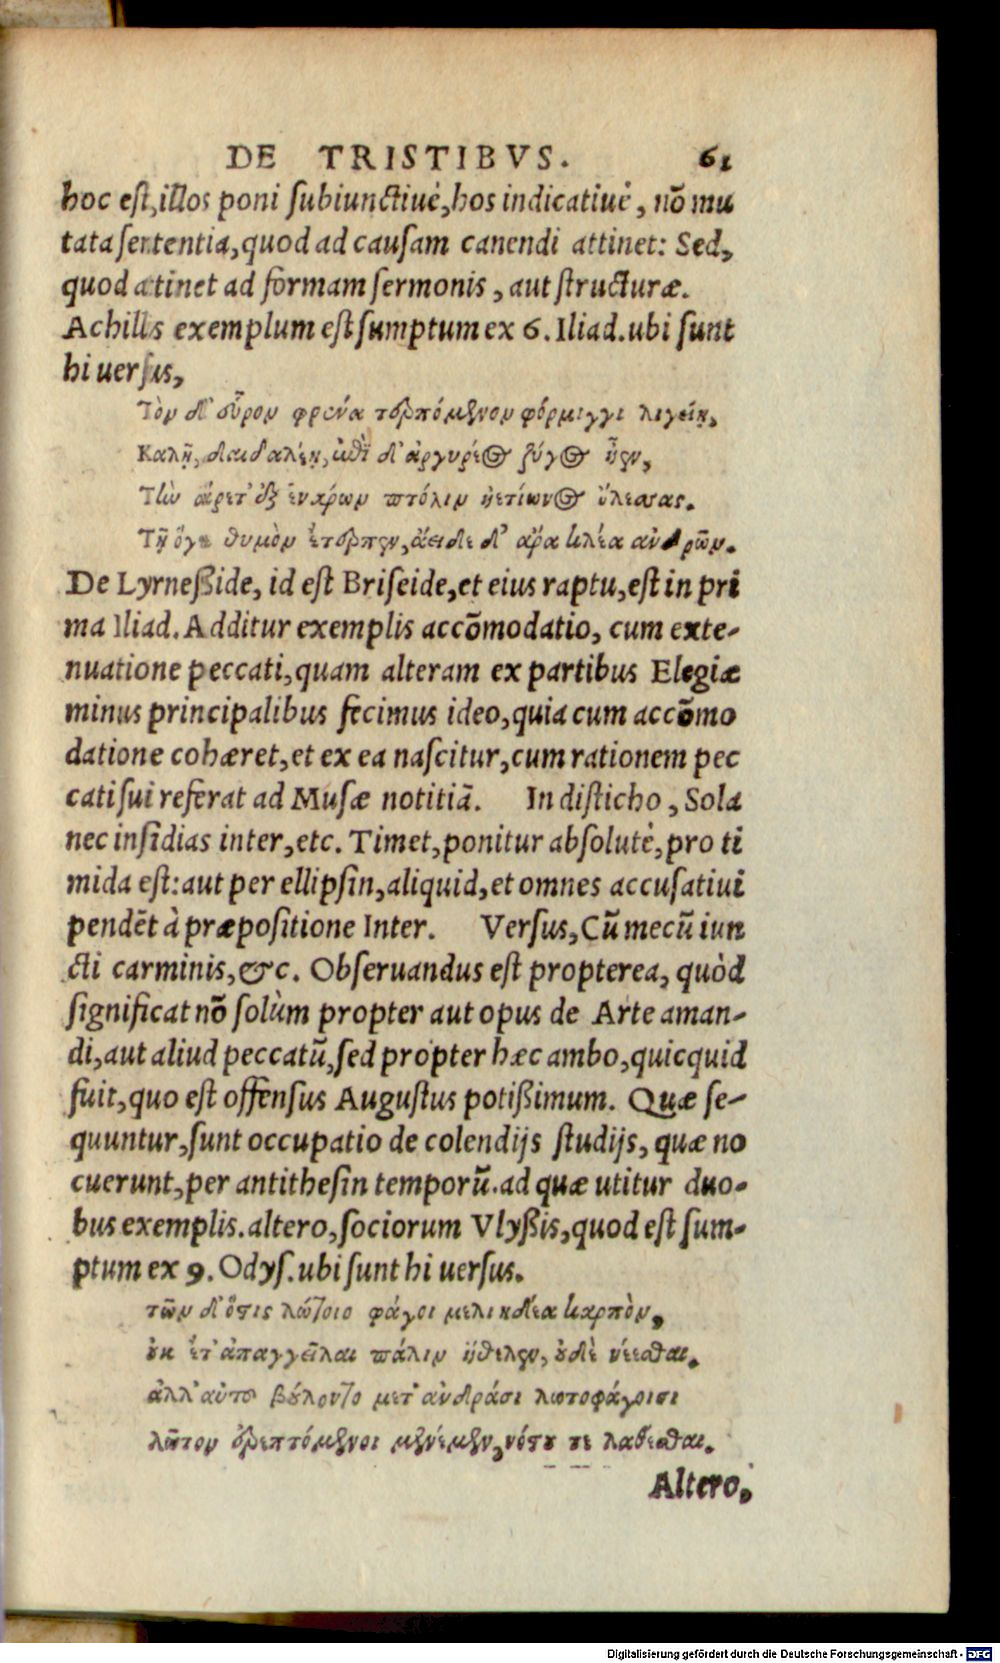 DE TRISTIBVS. 61
hoc est, illos poni subiunctiuè, hos indicatiuè, nō mu
tata sententia, quod ad causam canendi attinet: Sed,
quod atinet ad formam sermonis, aut structuræ.
Achillis exemplum est sumptum ex 6. Iliad. ubi sunt
hi uersus,
Τὸν δ' εὗρον φρένα τερπόμενον φόρμιγγι λιγείῃ,
Καλῇ, δαιδαλέῃ, ἐπὶ δ' ἀργυρέος ζύγος ἦεν,
Τὴν ἄρετ' ἐξ ἐνάρων πτόλιν ἠετίωνος ὄλεσσας.
Τῇ ὅγε θυμὸν ἔτερπεν, ἄειδε δ' ἄρα κλέα ἀνδρῶν.
De Lyrneßide, id est Briseide, et eius raptu, est in pri
ma Iliad. Additur exemplis accōmodatio, cum exte-
nuatione peccati, quam alteram ex partibus Elegiæ
minus principalibus fecimus ideo, quia cum accōmo
datione cohæret, et ex ea nascitur, cum rationem pec
cati sui referat ad Musæ notitiā. In disticho, Sola
nec insidias inter, etc. Timet, ponitur absolutè, pro ti
mida est: aut per ellipsin, aliquid, et omnes accusatiui
pendēt à præpositione Inter. Versus, Cū mecū iun
cti carminis, &c. Obseruandus est propterea, quòd
significat nō solùm propter aut opus de Arte aman-
di, aut aliud peccatū, sed propter hæc ambo, quicquid
fuit, quo est offensus Augustus potißimum. Quæ se-
quuntur, sunt occupatio de colendijs studijs, quæ no
cuerunt, per antithesin temporū. ad quæ utitur duo-
bus exemplis. altero, sociorum Vlyßis, quod est sum-
ptum ex 9. Odys. ubi sunt hi uersus.
τῶν δ' ὅστις λώτοιο φάγοι μελιηδέα καρπὸν,
οὐκ ἔτ' ἀπαγγεῖλαι πάλιν ἤθελεν, οὐδὲ νέεσθαι.
ἀλλ' αὐτοῦ βούλοντο μετ' ἀνδράσι λωτοφάγοισι
λῶτον ἐρεπτόμενοι μενέμεν, νόστου τε λαθέσθαι.
Altero,
Digitalisierung gefördert durch die Deutsche Forschungsgemeinschaft - DFG